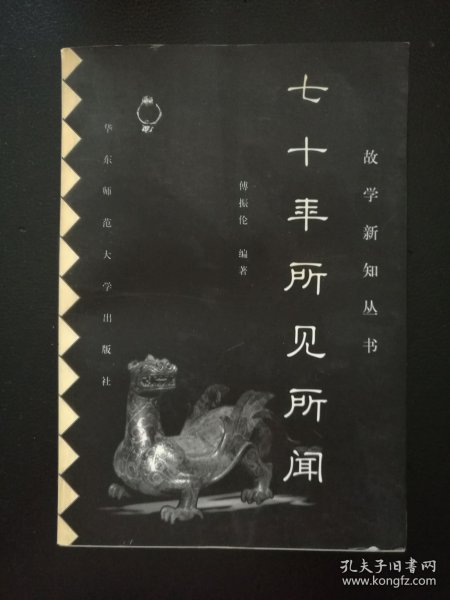 故学新知丛书
七十年所见所闻
傅振伦 编著
华东师范大学出版社
孔夫子旧书网
www.kongfz.com